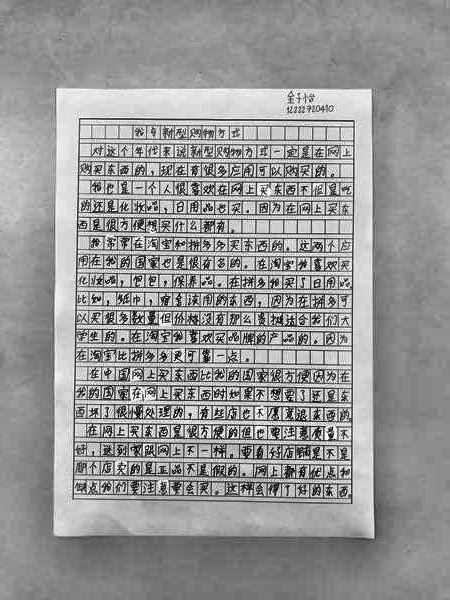 金子怡
12222720410
我与新型购物方式
对这个年代来说新型购物方式一定是在网上
购买东西的，现在有很多应用可以购买的。
我也是一个人很喜欢在网上买东西不但是吃
的还是化妆品，日用品也买。因为在网上买东
西是很方便想买什么都有。
我常常在淘宝和拼多多买东西的。这两个应
用在我的国家也是很有名的。在淘宝我喜欢买
化妆品，包包，保养品。在拼多多我买了日用品
比如，纸巾，宿舍该用的东西，因为在拼多可
以买很多数量但价格没有那么贵挺适合我们大
学生的。在淘宝我喜欢买品牌的产品的。因为
在淘宝比拼多多更可靠一点。
在中国网上买东西比我的国家很方便因为在
我的国家在网上买东西时如果不想要了还是东
西坏了很慢处理的，有些店也不愿意退东西的
在网上买东西是很方便的但也要注意质量不
好，送到家跟网上不一样。要看好店铺是不是
那个店卖的是正品不是假的。网上都有优点和
缺点我们要注意要会买。这样会得了好的东西。